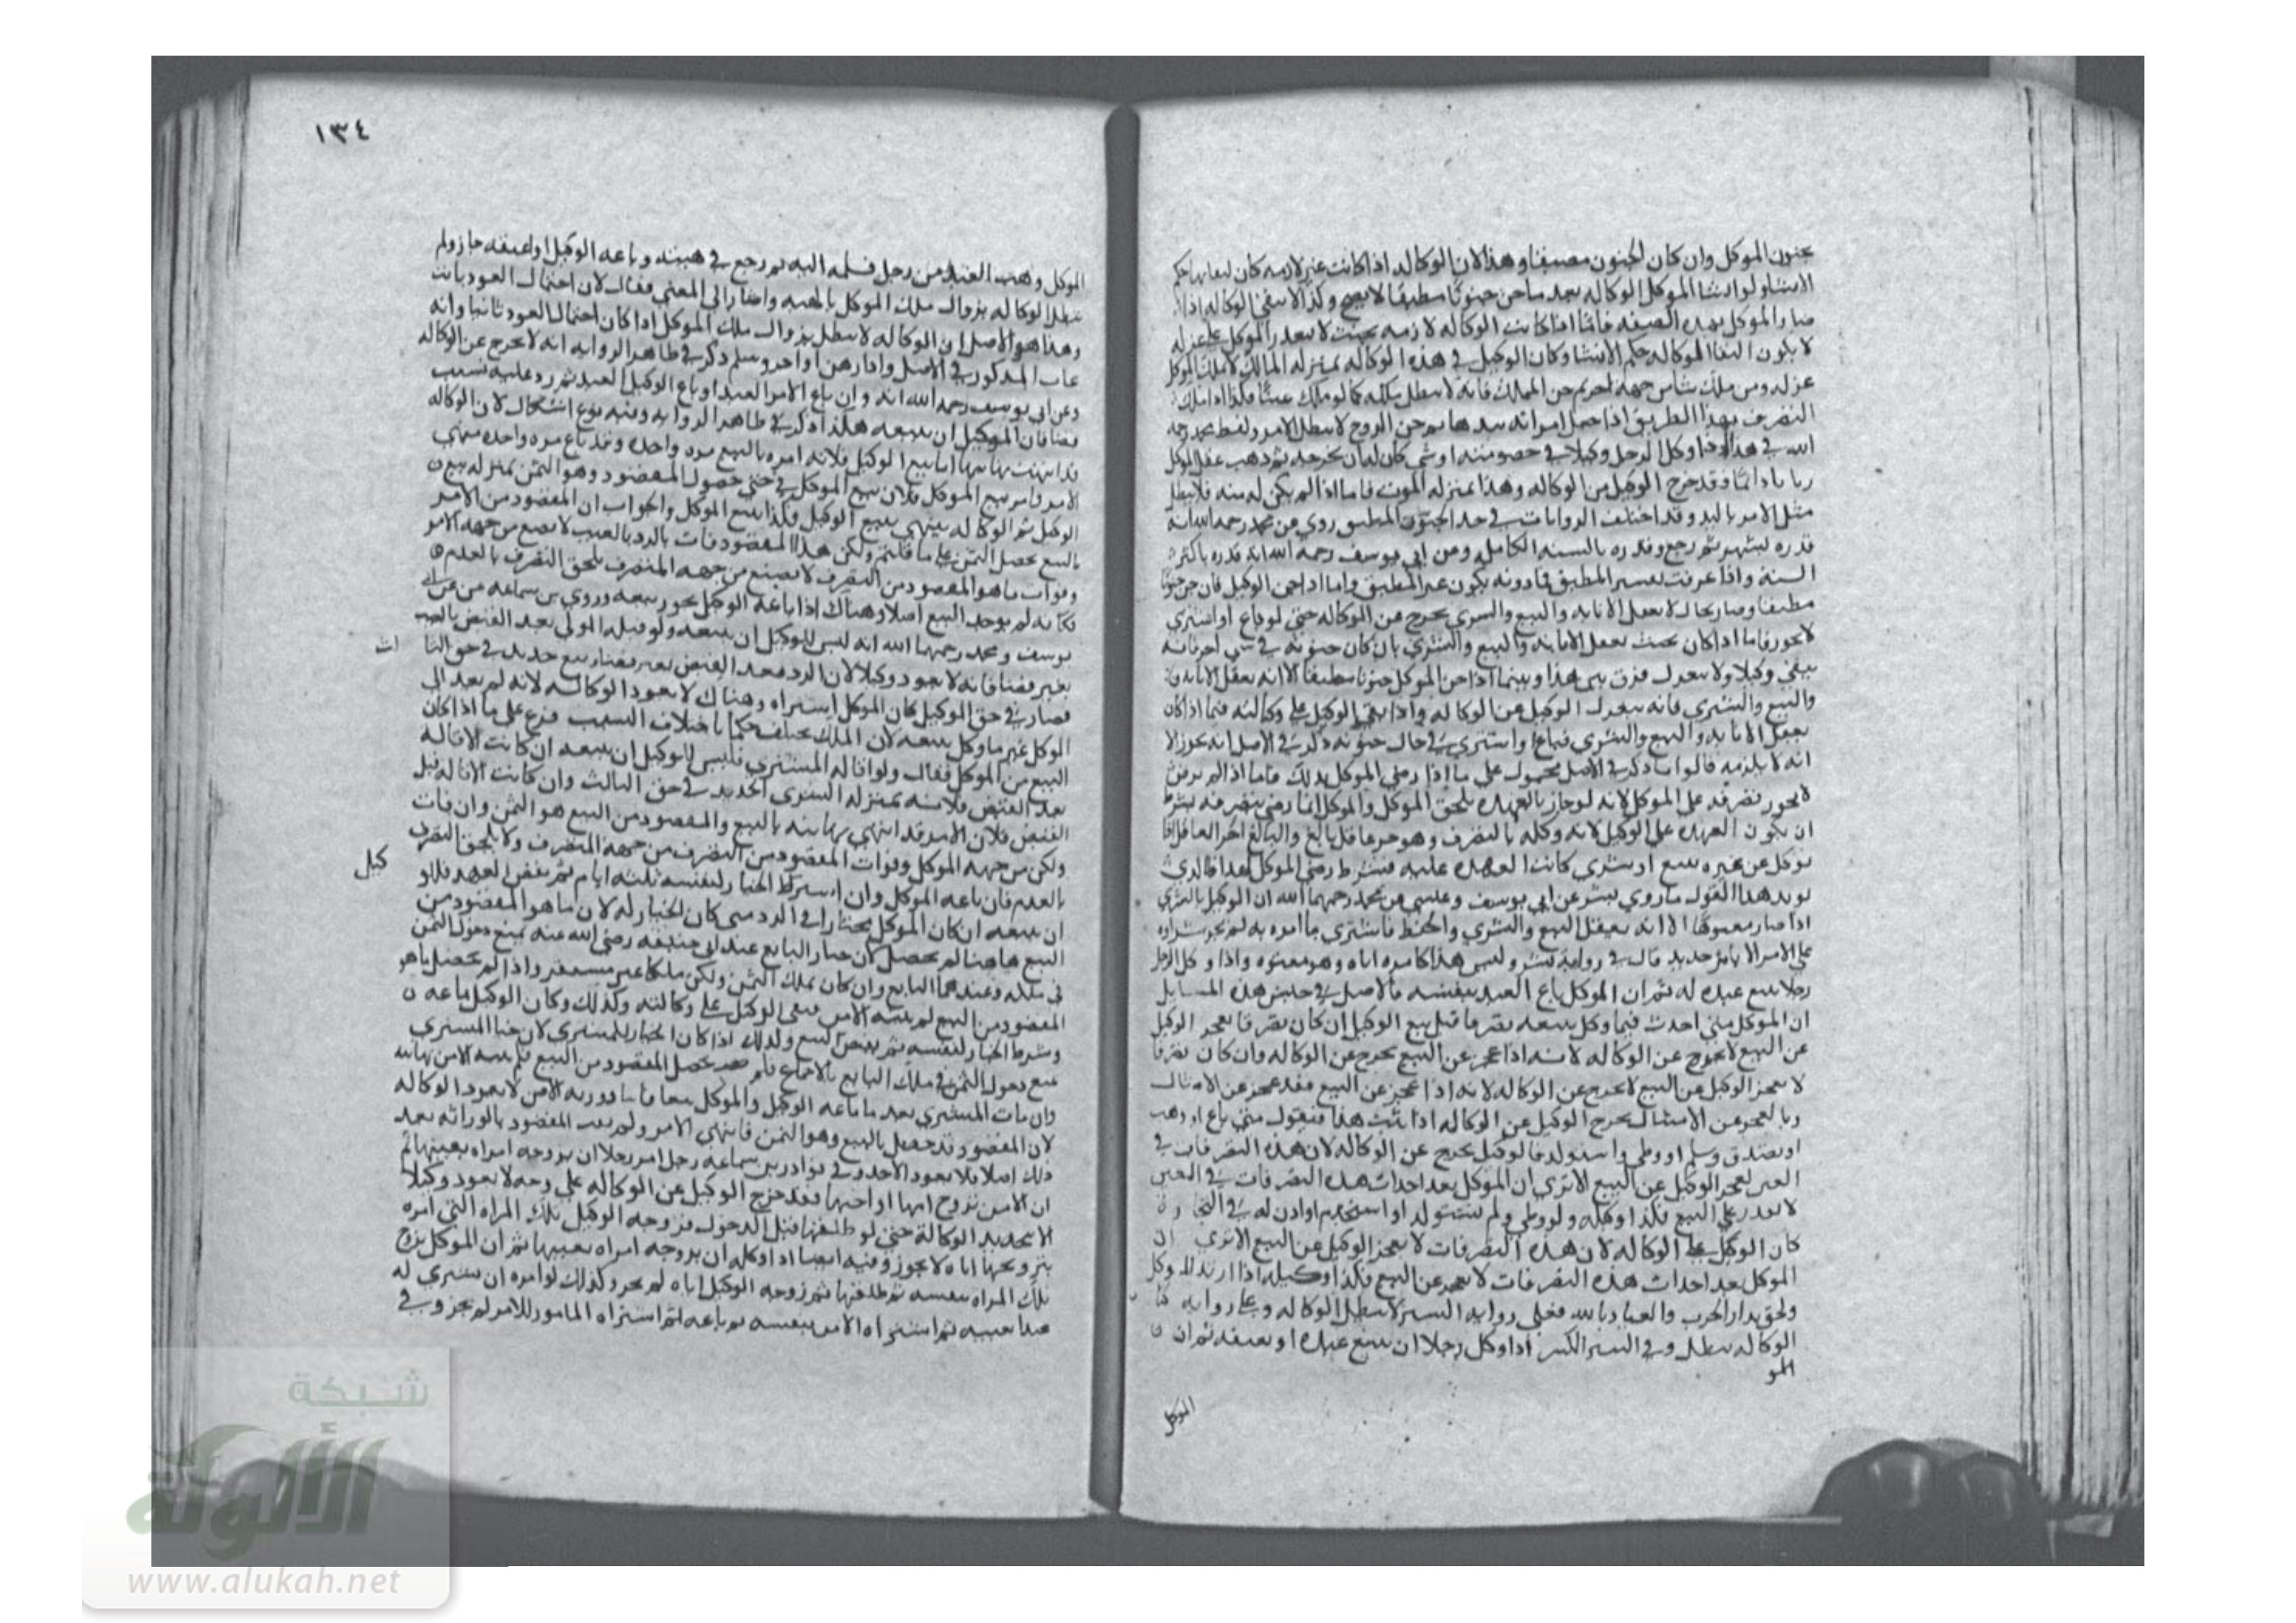 بجنون الموكل وان كان الجنون مصيفا وهذا لان الوكاله اذا كانت غير لازمه كان لبقايها حكم
الانشا ولو انشا الموكل الوكاله بعد ما جن جنونا مطبقا لا يصح وكذا لا تبقى الوكاله اذا
صار الموكل بهذه الصفه فاما اذا كانت الوكاله لازمه بحيث لا يقدر الموكل على عزله
لا يكون لبقا الوكاله حكم الانشا وكان الوكيل في هذه الوكاله بمنزله المالك لا ملك الموكل
عزله ومن ملك شيا من جهه اخر ثم جن المملك فانه لا يبطل ملكه كما لو ملك عينا فكذا اذا ملك
التصرف بهذا الطريق اذا جعل امر امراته بيدها ثم جن الزوج لا يبطل الامر ولفظ محمد رحمه
الله في هذا اذا وكل الرجل وكيلا في خصومته او شي كان له ان يخرجه ثم ذهب عقل الموكل
زمانا دايما فقد خرج الوكيل من الوكاله وهذا بمنزله الموت فاما اذا لم يكن له منه فلا يبطل
مثل الامر باليد وقد اختلف الروايات في حد الجنون المطبق روي عن محمد رحمه الله انه
قدره بشهر ثم رجع وقدره بالسنه الكامله وعن ابي يوسف رحمه الله انه قدره باكثر
السنة واذا عرفت تفسير المطبق فما دونه يكون غير المطبق واما اذا جن الوكيل فان جن جنونا
مطبقا وصار بحال لا يعقل الانابه والبيع والشرى يخرج من الوكاله حتى لو باع او اشترى
لا يجوز فاما اذا كان بحيث يعقل الانابه والبيع والشرى بان كان جنونه في شي اخر فانه
يبقى وكيلا ولا ينعزل فرق بين هذا وبينما اذا جن الموكل جنونا مطبقا الا انه يعقل الانابه
والبيع والشرى فانه ينعزل الوكيل عن الوكاله واذا بقي الوكيل على وكالته فيما اذا كان
يعقل الانابه والبيع والشرى فباع او اشترى في حال جنونه ذكر في الاصل انه يجوز الا
انه لا يلزمه قالوا ما ذكر في الاصل محمول على ما اذا رضي الموكل بذلك فاما اذا لم يرض
لا يجوز تصرفه على الموكل لانه لو جاز بالعهده تلحق الموكل والموكل انما رضي بتصرفه بشرط
ان يكون العهده على الوكيل لانه وكله بالتصرف وهو حر عاقل بالغ والبالغ الحر العاقل اذا
توكل عن غيره ببيع او بشرى كانت العهده عليه فيشترط رضى الموكل بهذا فالذي
يويد هذا القول ما روي بشر عن ابي يوسف وعلي عن محمد رحمهما الله ان الوكيل بالشرى
اذا صار معتوها الا انه يعقل البيع والشرى والحفظ فاشترى ما امره به لم يجز شراوه
على الامر الا بامر جديد قال في رواية بشر وليس هذا كامره اياه وهو معتوه واذا وكل الرجل
رجلا ببيع عبده له ثم ان الموكل باع العبد بنفسه فالاصل في جنس هذه المسايل
ان الموكل متى احدث فيما وكل ببيعه تصرفا قبل بيع الوكيل ان كان تصرفا يعجز الوكيل
عن البيع لا يخرج عن الوكاله لانه اذا عجز عن البيع يخرج عن الوكاله وان كان تصرفا
لا يعجز الوكيل عن البيع لا يخرج عن الوكاله لانه اذا عجز عن البيع فقد عجز عن الامتثال
وبالعجز عن الامتثال يخرج الوكيل عن الوكاله اذا ثبت هذا فنقول متى باع او وهب
او تصدق وسلم او وطي واستولد فالوكيل يخرج عن الوكاله لان هذه التصرفات في
العين تعجز الوكيل عن البيع الا ترى ان الموكل بعد احداث هذه التصرفات في العين
لا يقدر على البيع فكذا وكيله ولو وطي ولم تستولد او استخدم او اذن له في التجارة
كان الوكيل على الوكاله لان هذه التصرفات لا تعجز الوكيل عن البيع الا ترى ان
الموكل بعد احداث هذه التصرفات لا يعجز عن البيع فكذا وكيله اذا ارتد الموكل
ولحق بدار الحرب والعياذ بالله فعلى رواية السير لا تبطل الوكاله وعلى رواية
الوكاله تبطل وفي السير الكبير اذا وكل رجلا ان يبيع عبده او يعتقه ثم ان
المو
الموكل
١٣٤
الموكل وهب العبد من رجل فسلمه اليه ثم رجع في هبته وباعه الوكيل او اعتقه جاز ولم
تبطل الوكاله بزوال ملك الموكل بالهبه واشار الى المعنى فقال لان احتمال العود ثابت
وهذا هو الاصل ان الوكاله لا تبطل بزوال ملك الموكل اذا كان احتمال العود ثانيا وانه
المذكور في الاصل واذا رهن او اجر وسلم ذكر في ظاهر الروايه انه لا يخرج عن الوكاله
وعن ابي يوسف رحمه الله انه وان باع الامر العبد او باع الوكيل العبد ثم رد عليه بسبب
بقضا فان للوكيل ان يبيعه هكذا ذكر في ظاهر الروايه وفيه نوع اشكال لان الوكاله
قد انتهت نهايتها اما ببيع الوكيل فلانه امره بالبيع مره واحده وقد باع مره واحده فينتهي
الامر واما ببيع الموكل فلان بيع الموكل في حق حصول المقصود وهو الثمن بمنزله بيع
الوكيل ثم الوكاله ينتهي ببيع الوكيل فكذا ببيع الموكل والجواب ان المقصود من الامر
بالبيع تحصل الثمن على ما قلتم ولكن هذا المقصود فات بالرد بالعيب لا بصنع من جهه الامر
وفوات ما هو المقصود من التصرف لا بصنع من جهه المتصرف يلحق التصرف بالعدم
فكانه لم يوجد البيع اصلا وهناك اذا باعه الوكيل يجوز بيعه وروي بن سماعه عن ابي
يوسف ومحمد رحمهما الله انه ليس للوكيل ان يبيعه ولو قبله المولى بعد القبض بالعيب
بغير قضا فانه لا يعود وكيلا لان الرد بعد القبض بغير قضا بيع جديد في حق الثا
لث
فصار في حق الوكيل كان الموكل اشتراه وهناك لا يعود الوكاله لانه لم يعد الى
الموكل غير ما وكل ببيعه لان الملك يختلف حكما باختلاف السبب فرع على ما اذا كان
البيع من الموكل فقال ولو اقاله المشتري فليس للوكيل ان يبيعه ان كانت الاقاله
بعد القبض فلانه بمنزله الشرى الجديد في حق الثالث وان كانت الاقاله قبل
القبض فلان الامر قد انتهى نهايته بالبيع والمقصود من البيع هو الثمن وان فات
ولكن من جهه الموكل وفوات المقصود من التصرف من جهه المتصرف ولا يلحق التصرف
بالعدم فان باعه الموكل وان اشترط الخيار لنفسه ثلثه ايام ثم نقض العهد فللو
كيل
ان يبيعه ان كان الموكل مختارا في الرد متى كان الخيار له لان ما هو المقصود من
البيع هاهنا لم يحصل لان خيار البايع عند ابي حنيفه رضي الله عنه يمنع دخول الثمن
في ملكه وعندهما البايع وان كان يملك الثمن ولكن ملكا غير مستقر واذا لم يحصل ما هو
المقصود من البيع لم ينته الامر فبقي الوكيل على وكالته وكذلك وكان الوكيل باعه
وشرط الخيار لنفسه ثم نقض البيع ولذلك اذا كان الخيار للمشتري لان خيار المشتري
يمنع دخول الثمن في ملك البايع بالاجماع فلم يحصل المقصود من البيع فلم ينته الامر نهايته
وان مات المشتري بعد ما باعه الوكيل والموكل معا فاما وورثه الامر لا يعود الوكاله
لان المقصود قد حصل بالبيع وهو الثمن فانتهى الامر ولم يعد المقصود بالوراثه بعد
ذلك اصلا فلا يعود الاحد وفي نوادر بن سماعه رجل امر رجلا ان يزوجه امراه بعينها ثم
ان الامر تزوج امها او اختها فقد خرج الوكيل عن الوكاله على وجه لا يعود وكيلا
الا بتجديد الوكالة حتى لو طلقها قبل الدخول فزوجه الوكيل تلك المراه التي امره
بتزويجها اياه لا يجوز وفيه ايضا اذا وكله ان يزوجه امراه بعينها ثم ان الموكل تزوج
تلك المراه بنفسه ثم طلقها ثم زوجه الوكيل اياه لم يجز وكذلك لو امره ان يشتري له
عبدا بعينه ثم اشتراه الامر بنفسه ثم باعه ثم اشتراه المامور للامر لم يجز وفي
شبكة
الألوكة
www.alukah.net